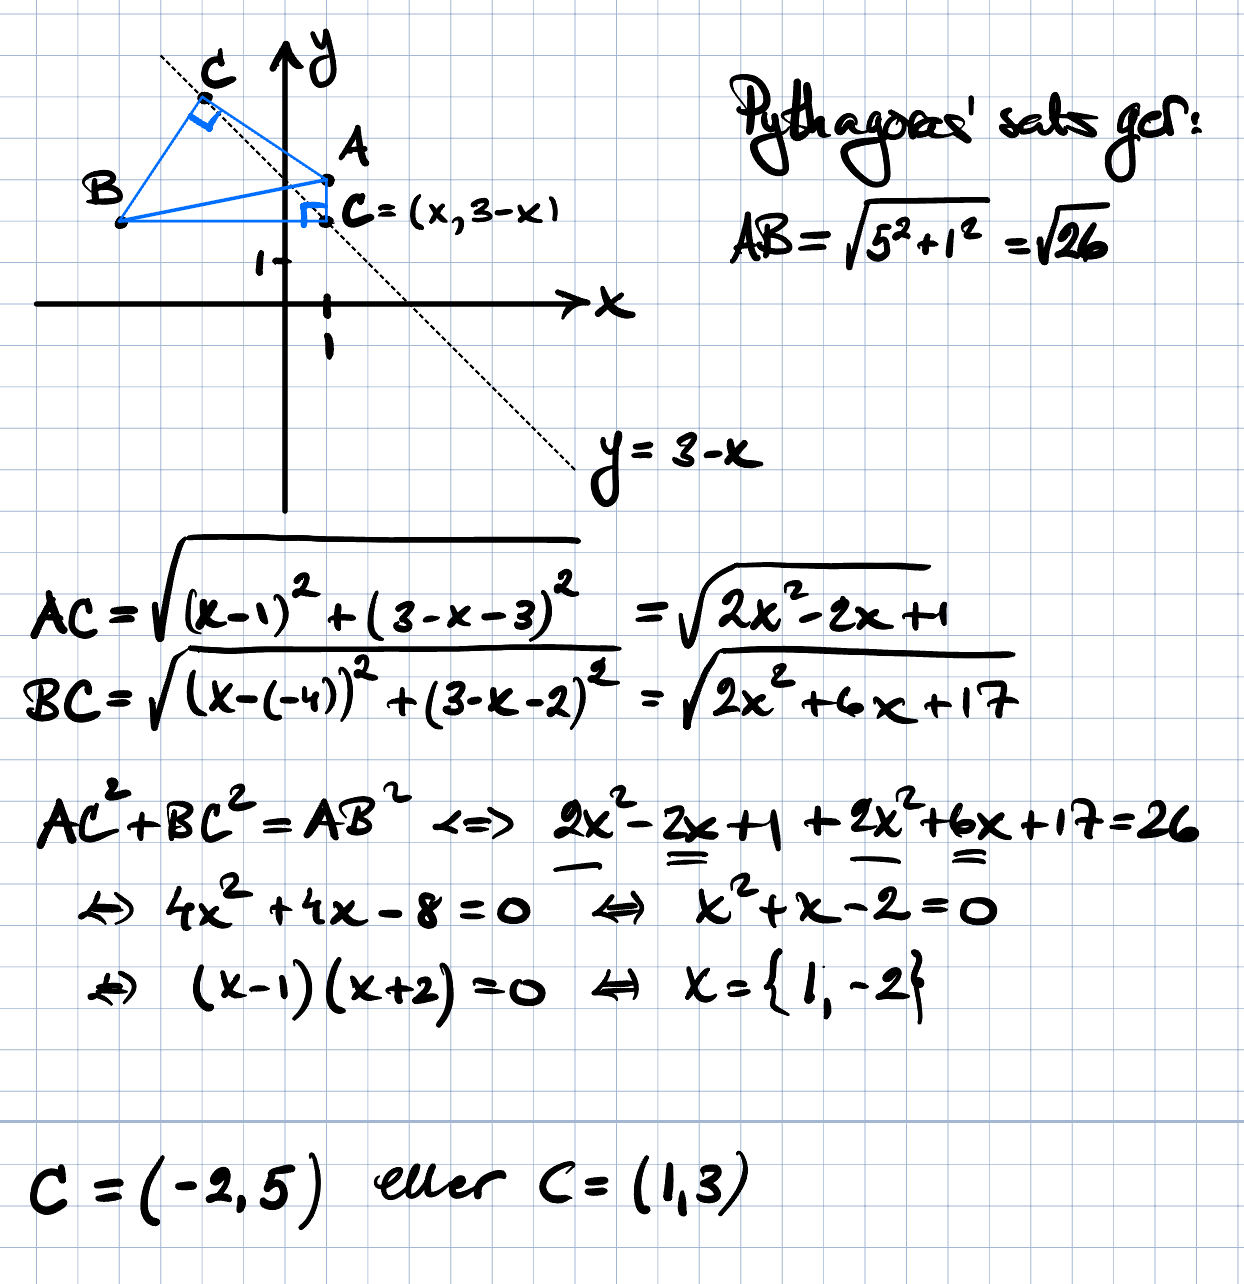 y
C
A
B
C = (x, 3-x)
1
x
1
y = 3-x
Pythagoras' sats ger:
AB = √(5²+1²) = √26
AC = √((x-1)² + (3-x-3)²) = √(2x²-2x+1)
BC = √((x-(-4))² + (3-x-2)²) = √(2x²+6x+17)
AC² + BC² = AB² <=> 2x² - 2x + 1 + 2x² + 6x + 17 = 26
<=> 4x² + 4x - 8 = 0 <=> x² + x - 2 = 0
<=> (x-1)(x+2) = 0 <=> x = {1, -2}
C = (-2, 5) eller C = (1, 3)